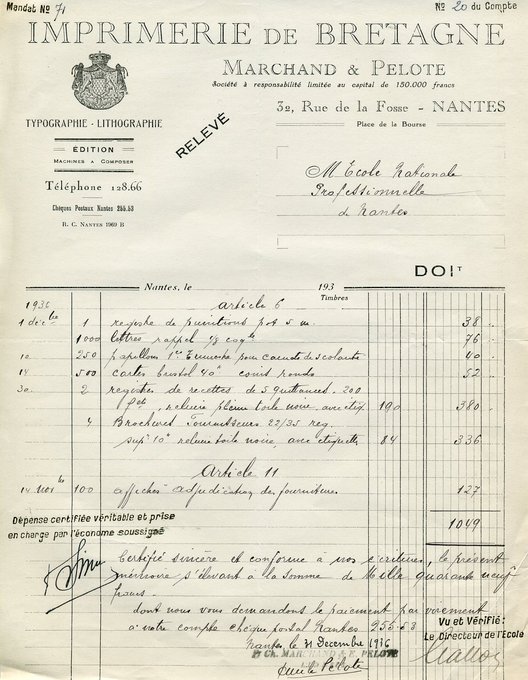 Mandat No 71
No 20 du Compte
IMPRIMERIE DE BRETAGNE
MARCHAND & PELOTE
Société à responsabilité limitée au capital de 150.000 francs
32, Rue de la Fosse - NANTES
Place de la Bourse
TYPOGRAPHIE - LITHOGRAPHIE
RELEVÉ
ÉDITION
MACHINES A COMPOSER
Téléphone 128.66
Chèques Postaux Nantes 255.53
R. C. NANTES 1969 B
M Ecole Nationale
Professionnelle
de Nantes
DOIT
Nantes, le 193
Timbres
1936 Article 6
1 1 registre de punitions 38
1000 lettres rappel 76
10 250 papillons 1er Trimestre pour carnets de scolarité 40
14 500 cartes bristol 40 coins ronds 52
30 2 registres de recettes de 5 quittances. 200
reliure pleine toile noire, avec étiq 190 380
4 Brochures Fournisseurs 22/35 reg.
reliure toile noire, avec étiquette 84 336
Article 11
14 100 affiches adjudication de fournitures 127
1049
Dépense certifiée véritable et prise
en charge par l'économe soussigné
Certifié sincère et conforme à nos écritures, le présent
mémoire s'élevant à la somme de Mille quarante neuf
francs.
dont nous vous demandons le paiement par virement
à notre compte chèque postal Nantes 255-53
Vu et Vérifié:
Le Directeur de l'École
Nantes le 31 Decembre 1936
CH. MARCHAND & E. PELOTE
Emile Pelote